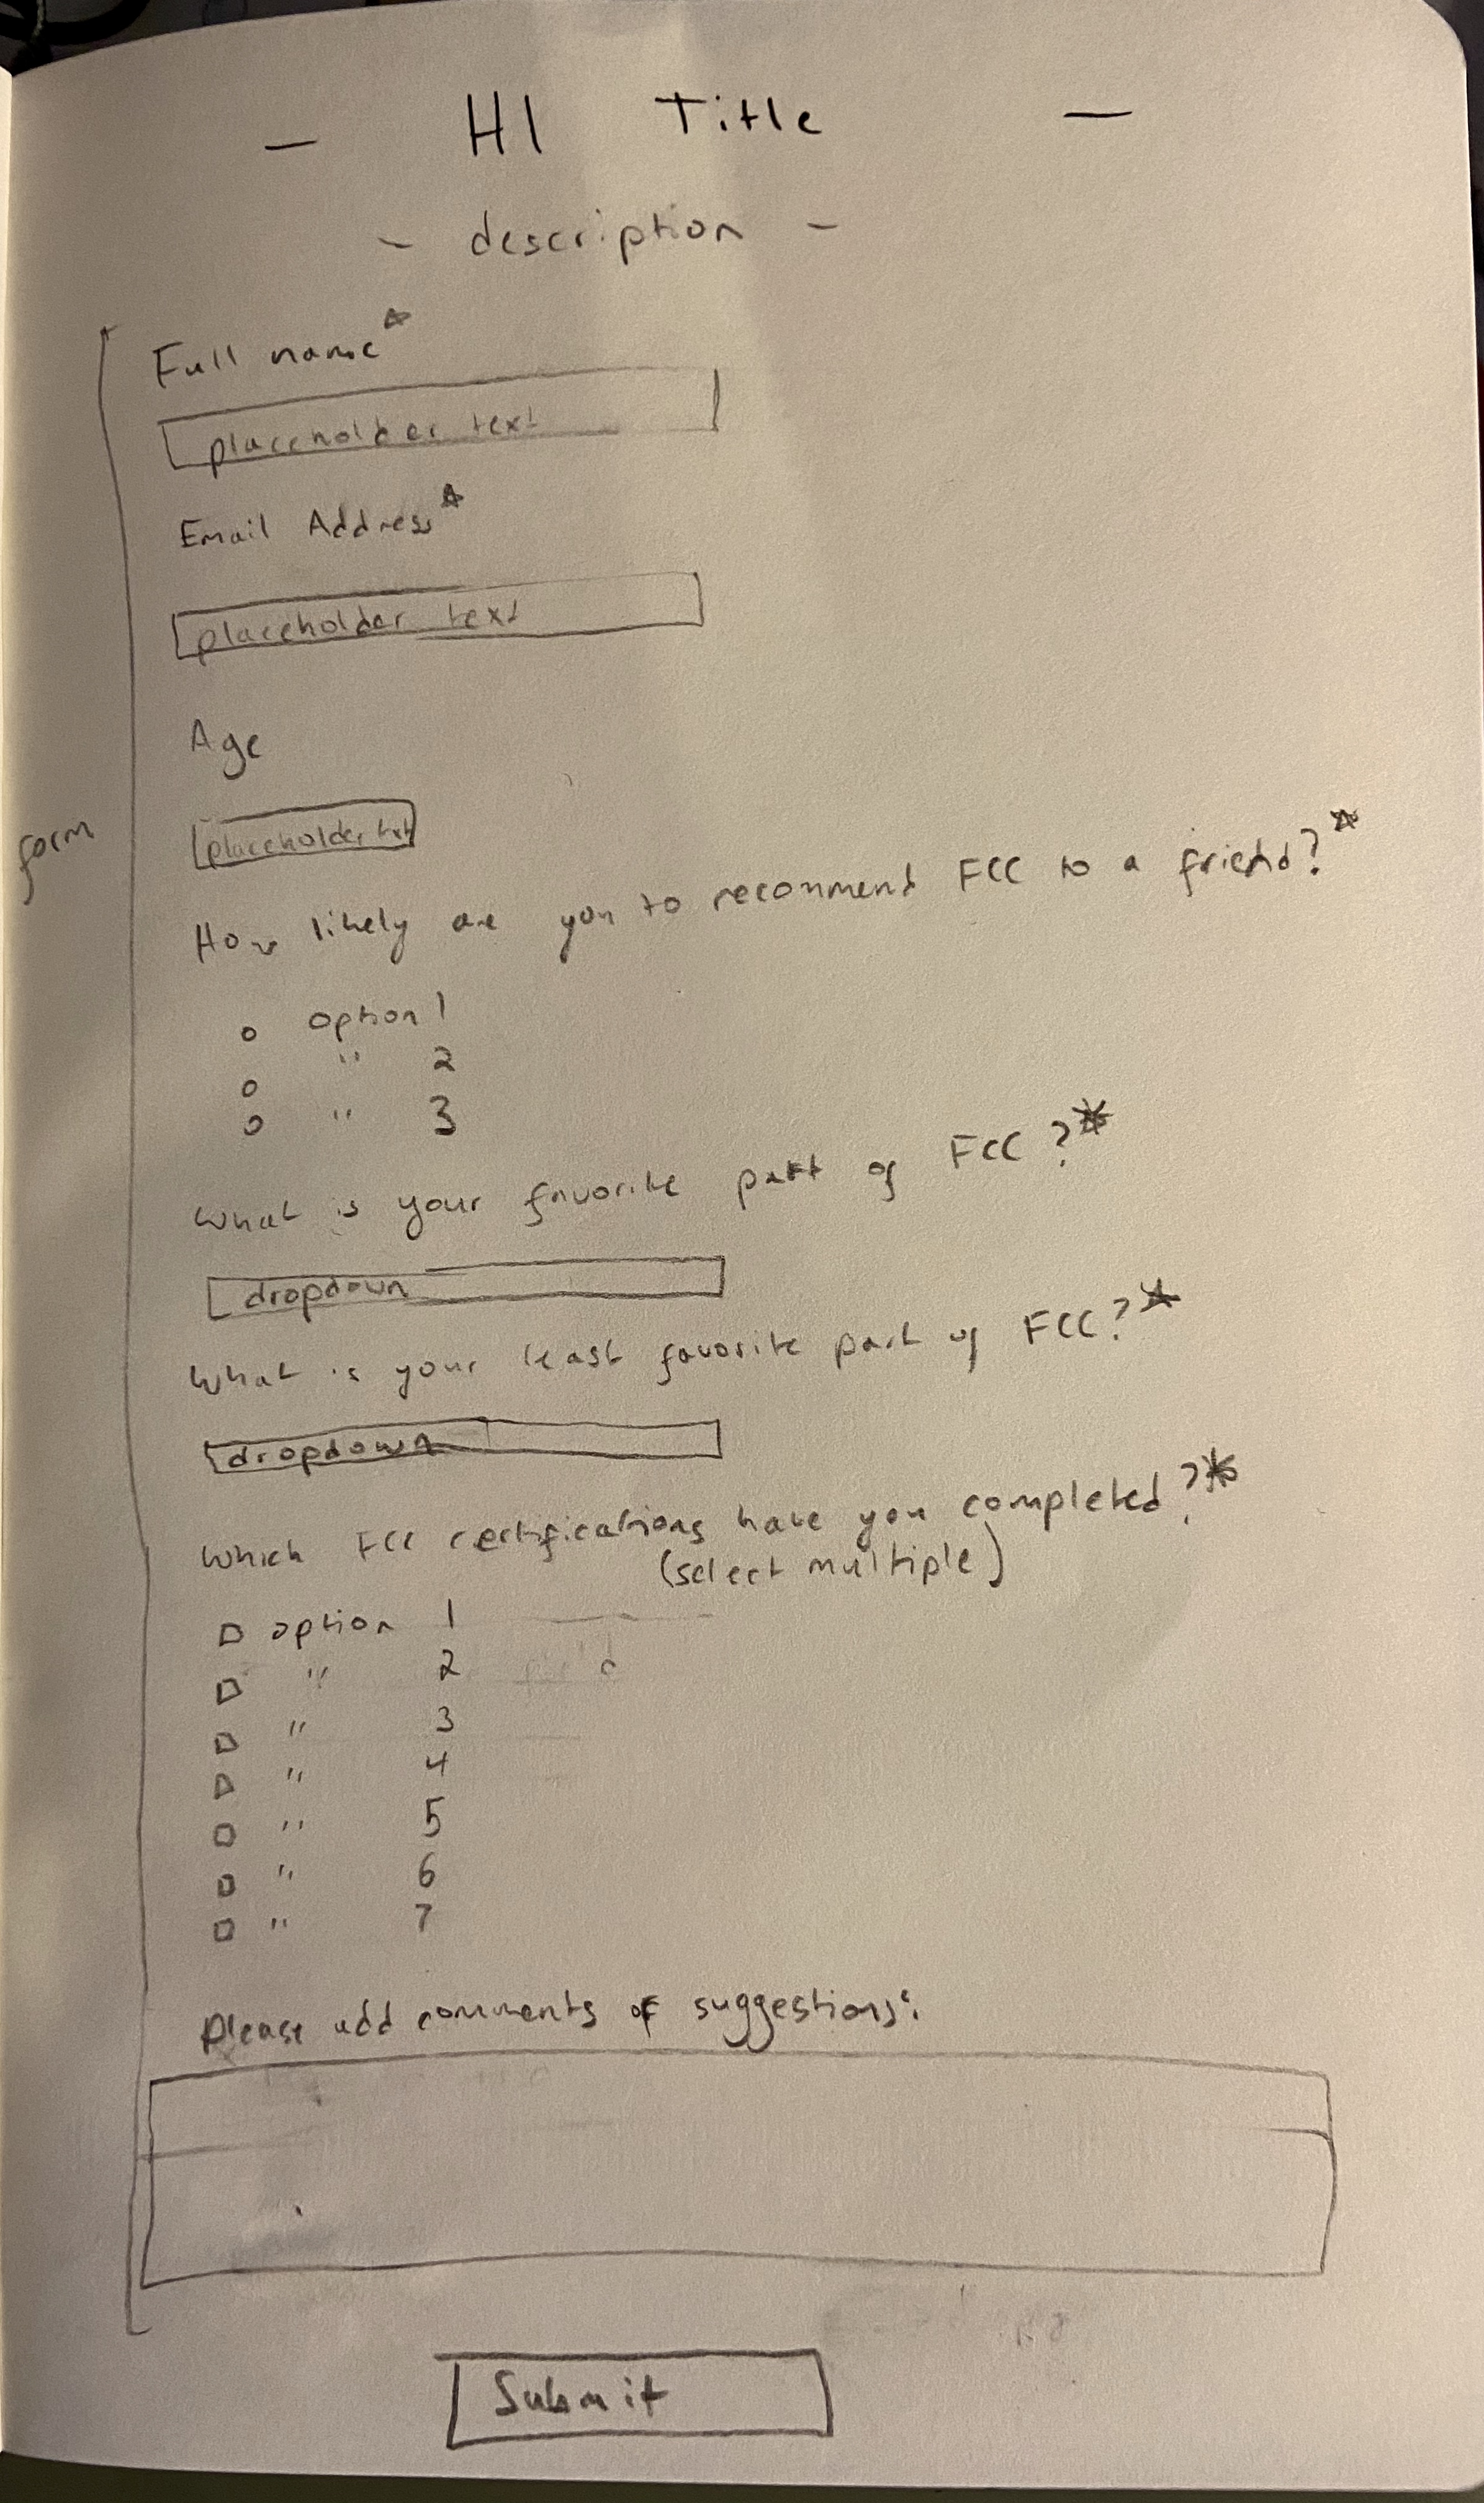 — H1 Title —
- description -
Full name*
placeholder text
Email Address*
placeholder text
Age
placeholder txt
form
How likely are you to recommend FCC to a friend?*
o option 1
o " 2
o " 3
What is your favorite part of FCC?*
dropdown
What is your least favorite part of FCC?*
dropdown
Which FCC certifications have you completed?*
(select multiple)
□ option 1
□ " 2
□ " 3
□ " 4
□ " 5
□ " 6
□ " 7
Please add comments of suggestions:
Submit